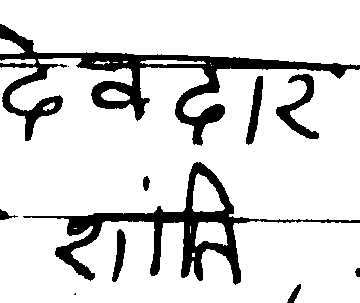 देवदार
शांति